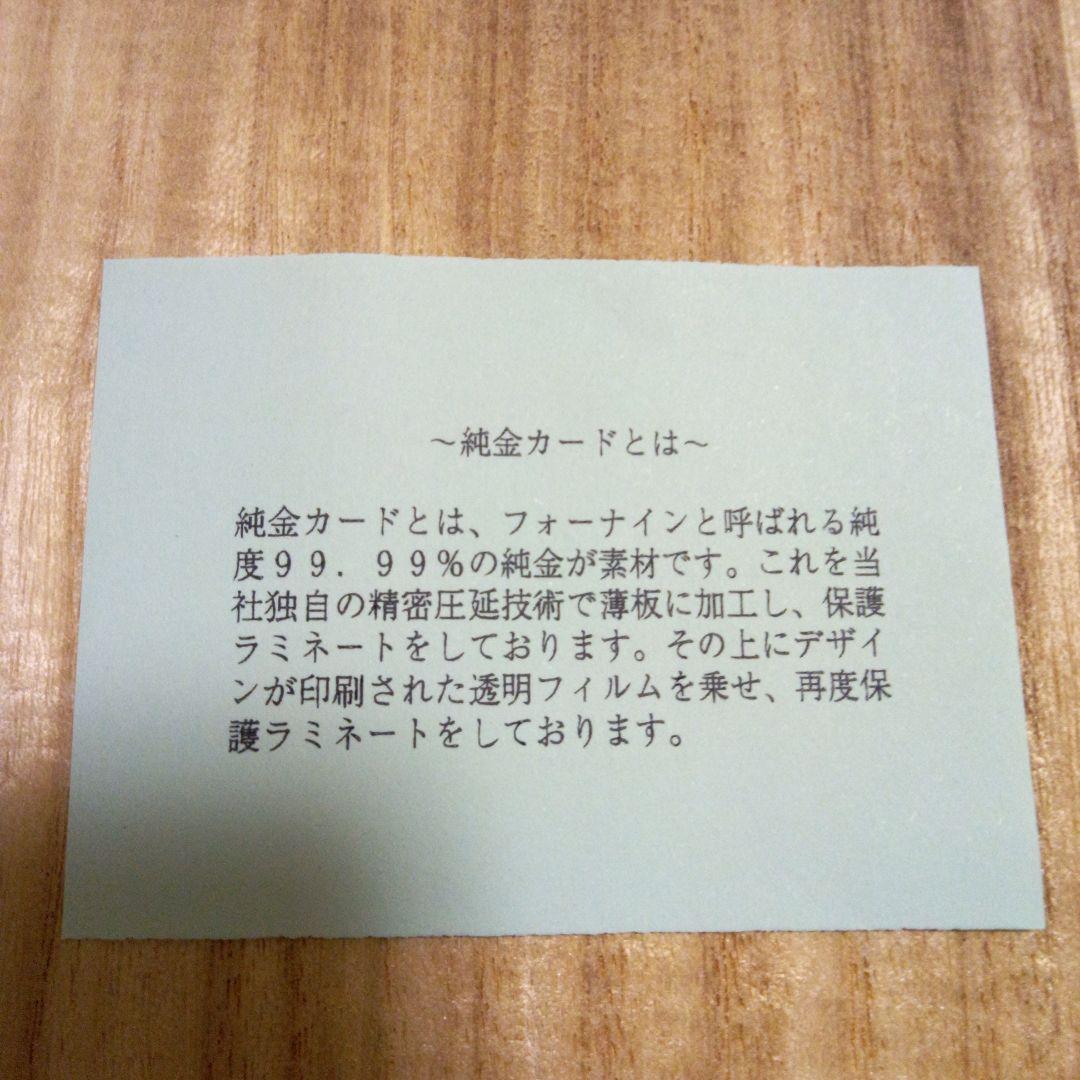 ～純金カードとは～
純金カードとは、フォーナインと呼ばれる純
度９９．９９％の純金が素材です。これを当
社独自の精密圧延技術で薄板に加工し、保護
ラミネートをしております。その上にデザイ
ンが印刷された透明フィルムを乗せ、再度保
護ラミネートをしております。